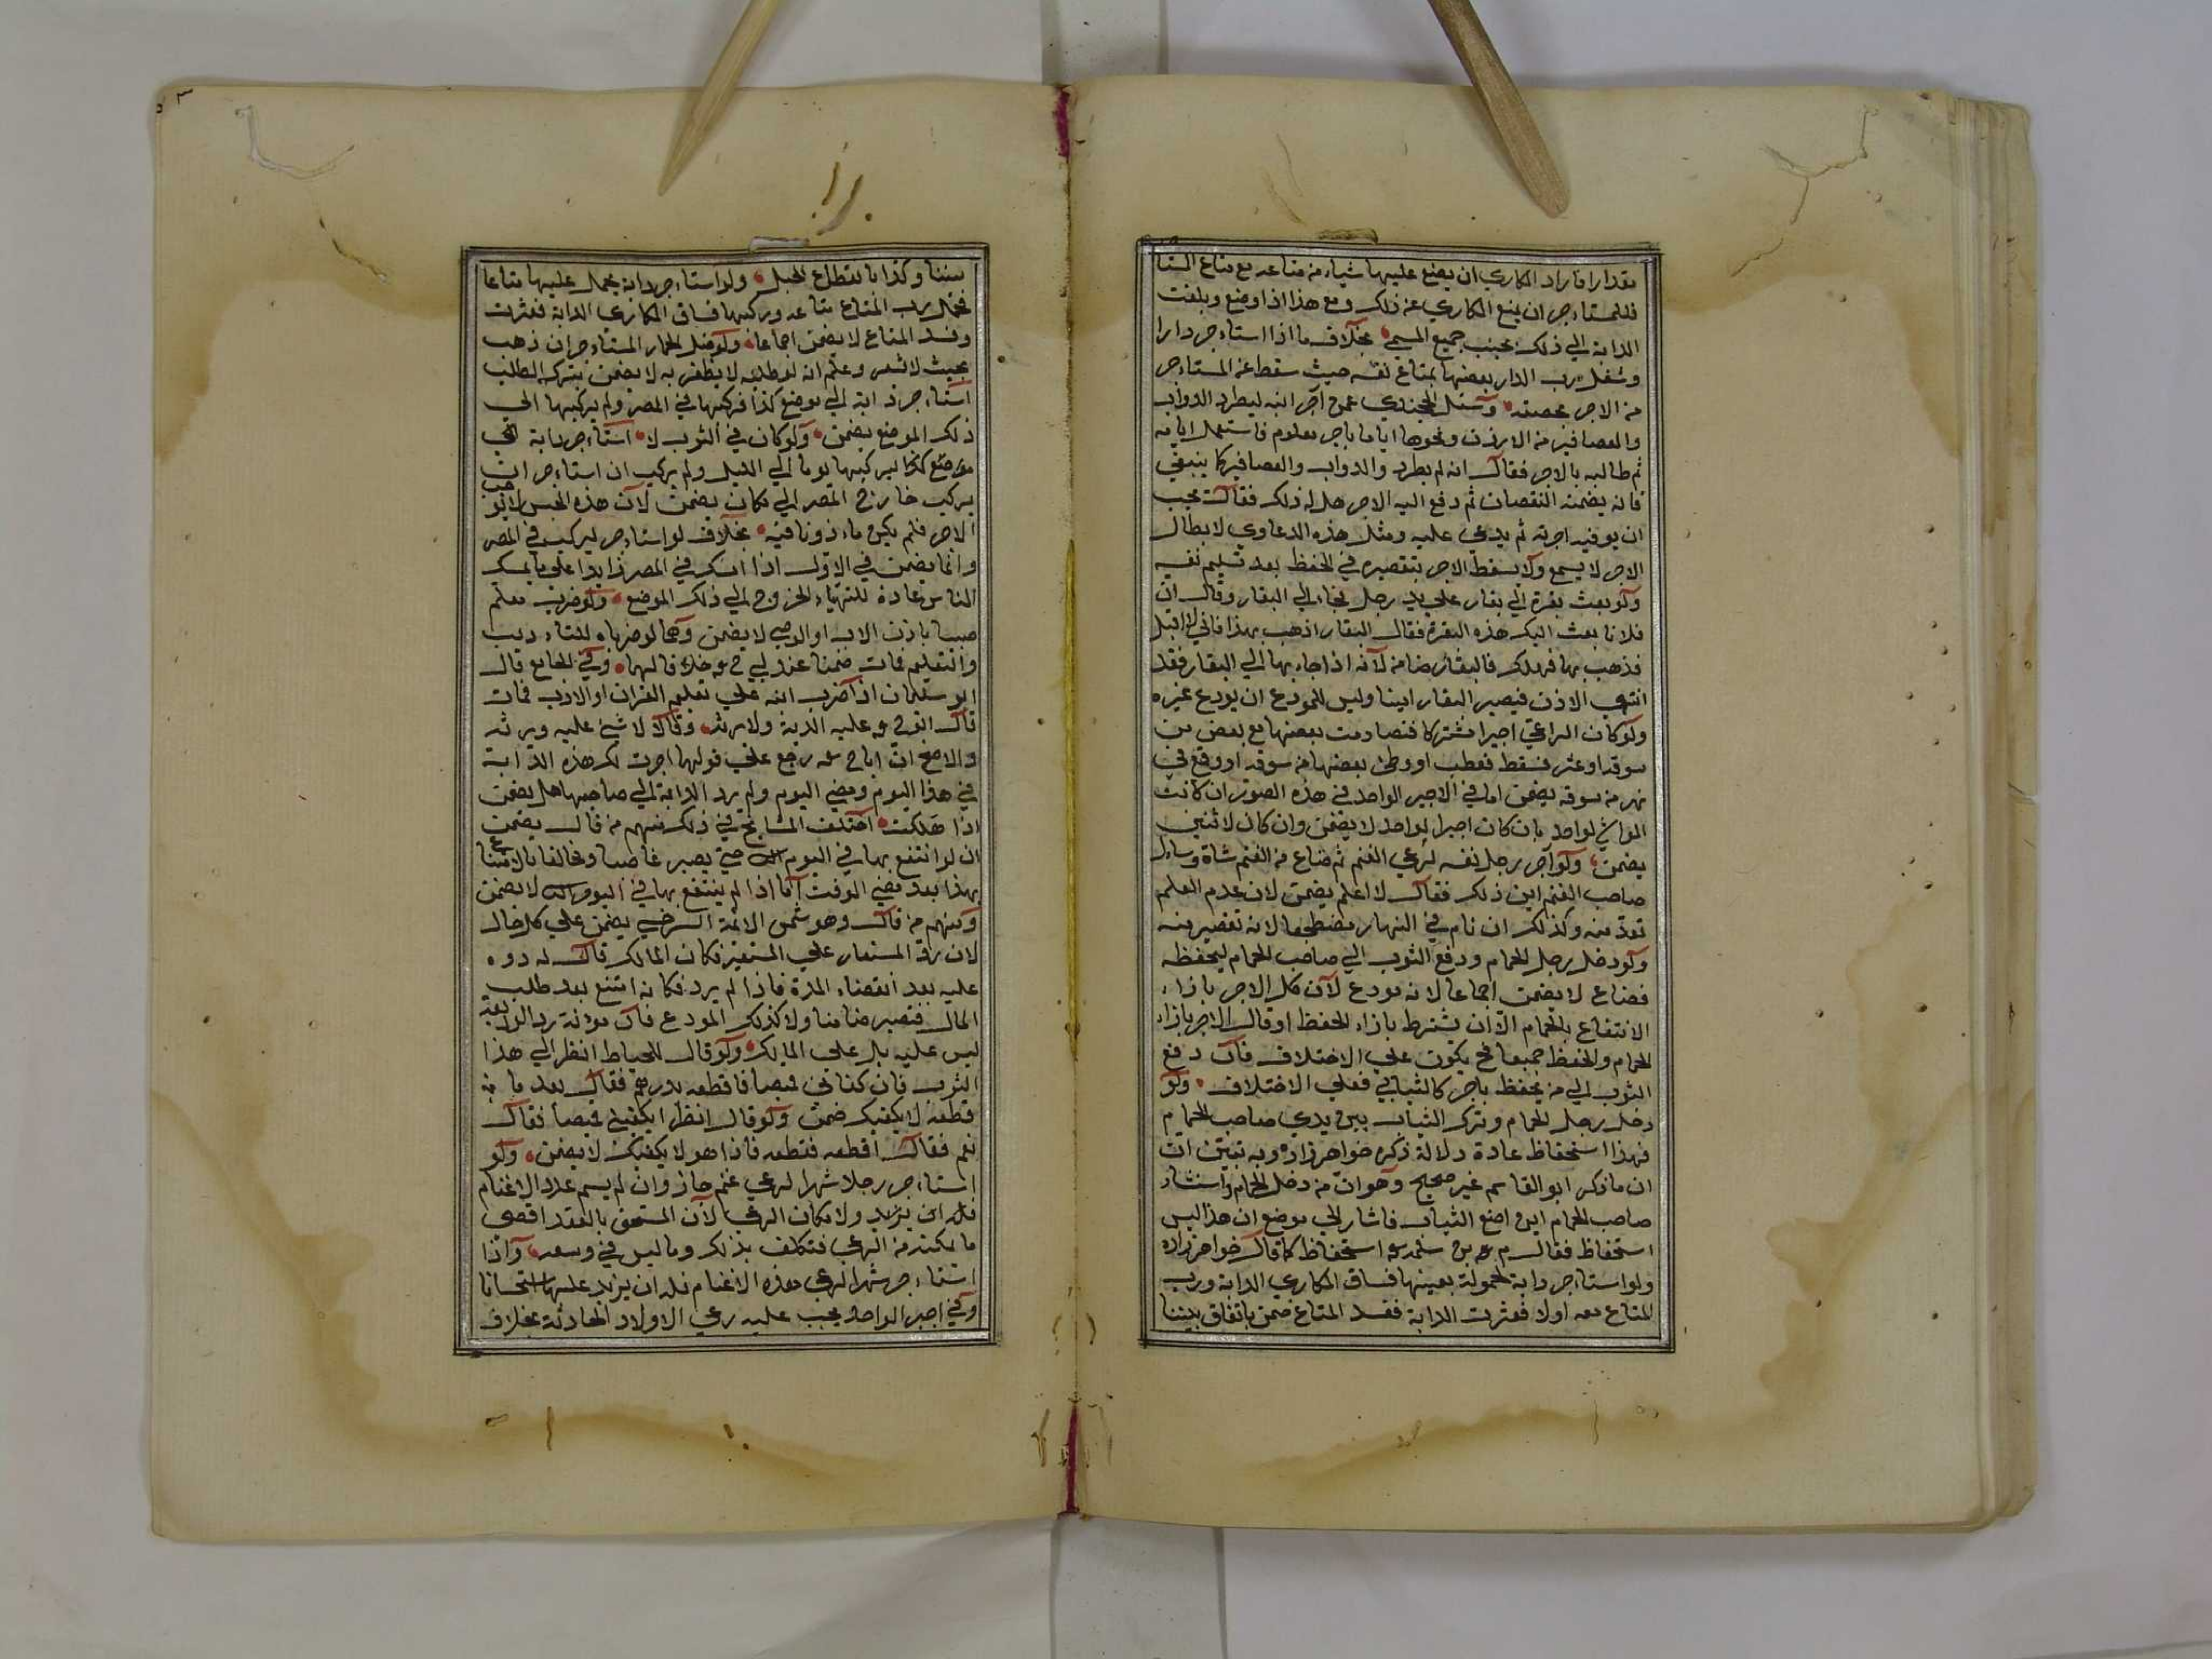 مقدارا فاراد المكاري ان يضع عليها شياء من متاعه مع متاع المستا
فللمستاءجر ان يمنع المكاري عن ذلك ومع هذا اذا وضع وبلغت
الدابة الي ذلك يجب جميع المسمي بخلاف ما اذا استاءجر دارا
وشغل رب الدار بعضها بمتاع نفسه حيث سقط عن المستاءجر
من الاجر بحصته وسئل الخجندي عمن آجر ابنه ليطرد الدواب
والعصافير من الارز ونحوها اياما باجر معلوم فاستعمل ايامه
ثم طالبه بالاجر فقال انه لم يطرد والدواب والعصافير كما ينبغي
فانه يضمنه النقصان ثم دفع اليه الاجر هل له ذلك فقال يجب
ان يوفيه اجرته ثم يدعي عليه ومثل هذه الدعاوي لابطال
الاجر لا يسمع ولا يسقط الاجر بتقصيره في الحفظ بعد تسليم نفسه
ولو بعث بقرة الي بقار علي يد رجل فجاء الي البقار وقال ان
فلانا بعث اليك هذه البقرة فقال البقار اذهب بهذا فاني لا اقبل
فذهب بها فهلك فالبقار ضامن لانه اذا جاء بها الي البقار فقد
انتهي الاذن فيصير البقار امينا وليس للمودع ان يودع غيره
ولو كان الراعي اجيرا مشتركا فتصادمت بعضها مع بعض من
سوقه او عثر فسقط فعطب او وطئ بعضها من سوقه او وقع في
نهر من سوقه يضمن اما في الاجير الواحد في هذه الصور ان كانت
المواشي لواحد بان كان اجيرا لواحد لا يضمن وان كان لاثنين
يضمن ولو آجر رجل نفسه لرعي الغنم ثم ضاع من الغنم شاة وساءل
صاحب الغنم اين ذلك فقال لا اعلم يضمن لان عدم العلم
تعد منه وكذلك ان نام في النهار مضطجعا لانه تقصير منه
ولو دخل رجل الحمام ودفع الثوب الي صاحب الحمام ليحفظه
فضاع لا يضمن اجماعا لانه مودع لان كل الاجر بازاء
الانتفاع بالحمام الا ان يشترط بازاء الحفظ او قال الاجر بازاء
الحمام والحفظ جميعا فح يكون علي الاختلاف فان دفع
الثوب الي من يحفظ باجر كالثيابي فعلي الاختلاف ولو
دخل رجل الحمام وترك الثياب بين يدي صاحب الحمام
فهذا استحفاظ عادة دلالة ذكره خواهرزاده وبه تبين ان
ان ما ذكر ابو القاسم غير صحيح وهو ان من دخل الحمام واستشار
صاحب الحمام اين اضع الثياب فاشار الي موضع ان هذا ليس
استحفاظ فقال م بن سلمه استحفاظ كما قال خواهرزاده
ولو استاءجر دابة لحمولة بعينها فساق المكاري الدابة ورب
المتاع معه اولا فعثرت الدابة ففسد المتاع ضمن باتفاق بيننا
بيننا وكذا بانقطاع الحبل ولو استاءجر دابة يحمل عليها متاعا
فحمل رب المتاع متاعه وركبها فساق المكاري الدابة فعثرت
وفسد المتاع لا يضمن اجماعا ولو ضل الحمار المستاءجر ان ذهب
بحيث لا شعر وعلم انه لو طلبه لا يظفر به لا يضمن بترك الطلب
استاءجر دابة الي موضع كذا فركبها في المصر ولم يركبها الي
ذلك الموضع يضمن ولو كان في الثوب لا استاءجر دابة الي
موضع كذا ليركبها يوما الي الليل ولم يركب ان استاءجر ان
يركب خارج المصر الي مكان يضمن لان هذه الحبس لا يوجب
الاجر فلم يكن ماءذونا فيه بخلاف لو استاءجر ليركب في المصر
وانما يضمن في الاول اذا امسك في المصر زايدا علي ما يمسك
الناس عادة للتهياء للخروج الي ذلك الموضع ولو ضرب معلم
صبيا باذن الاب او الوصي لا يضمن وهما لو ضرباه للتاءديب
والتعليم فمات ضمنا عند ابي ح خلافا لهما وفي الجامع قال
ابو سليمان اذا ضرب ابنه علي تعليم القران او الادب فمات
قال ابو ح عليه الدية ولا يرثه وقالا لا شئ عليه ويرثه
والاصح ان ابا ح رجع علي قولهما اجرت لك هذه الدابة
في هذا اليوم ومضي اليوم ولم يرد الدابة الي صاحبها هل يضمن
اذا هلكت اختلف المشايخ في ذلك منهم من قال يضمن
ان لو انتفع بها في اليوم حتي يصير غاصبا ومخالفا بالانتفاع
بهذا بعد مضي الوقت اما اذا لم ينتفع بها في اليوم لا يضمن
ومنهم من قال وهو شمس الائمة السرخسي يضمن علي كل حال
لان رد المستعار علي المستعير فكان المالك قال له رده
عليه بعد انقضاء المدة فاذا لم يرد فكانه امتنع بعد طلب
المالك فتصير ضامنا ولا كذلك المودع فان مؤنة رد الوديعة
ليس عليه بل علي المالك ولو قال للخياط انظر الي هذا
الثوب فان كفاني قميصا فاقطعه بدرهم فقال بعد ما
قطعه لا يكفيك ضمن ولو قال انظر ايكفيني قميصا فقال
نعم فقال اقطعه فقطعه فاذا هو لا يكفيك لا يضمن ولو
استاءجر رجلا شهرا لرعي غنم جاز وان لم يسم عدد الاغنام
فله ان يزيد ولا مكان الرعي لان المستحق بالعقد اقصي
ما يمكنه من الرعي فتكلف بذلك وما ليس في وسعه واذا
استاءجر شهرا لرعي هذه الاغنام فله ان يزيد عليها استحسانا
وفي اجير الواحد يجب عليه رعي الاولاد الحادثة بخلاف